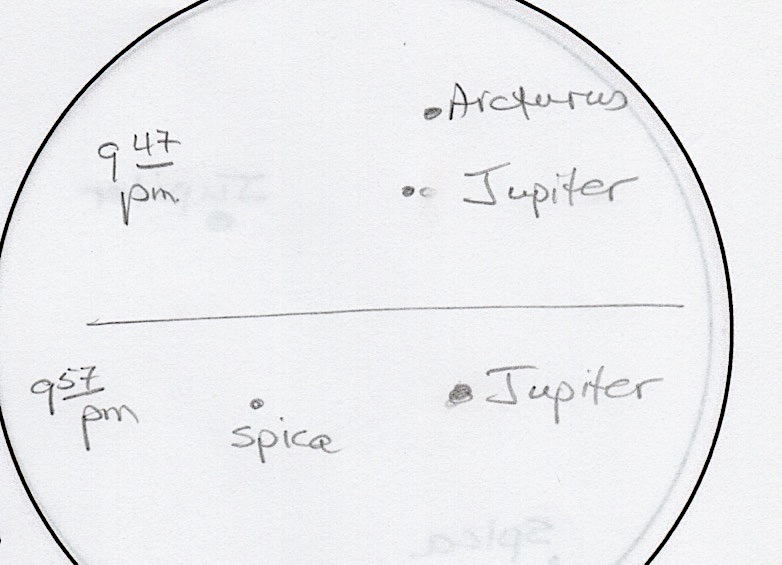 Arcturus
9 47
pm.
Jupiter
9 57
pm
Jupiter
Spica